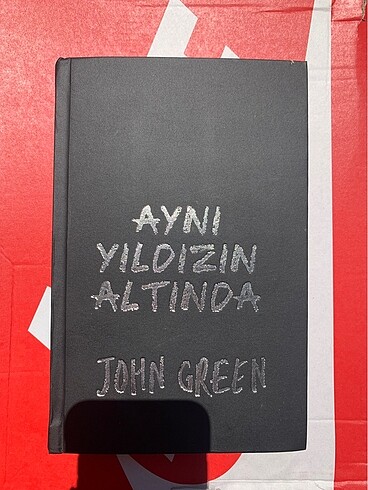 AYNI
YILDIZIN
ALTINDA
JOHN GREEN